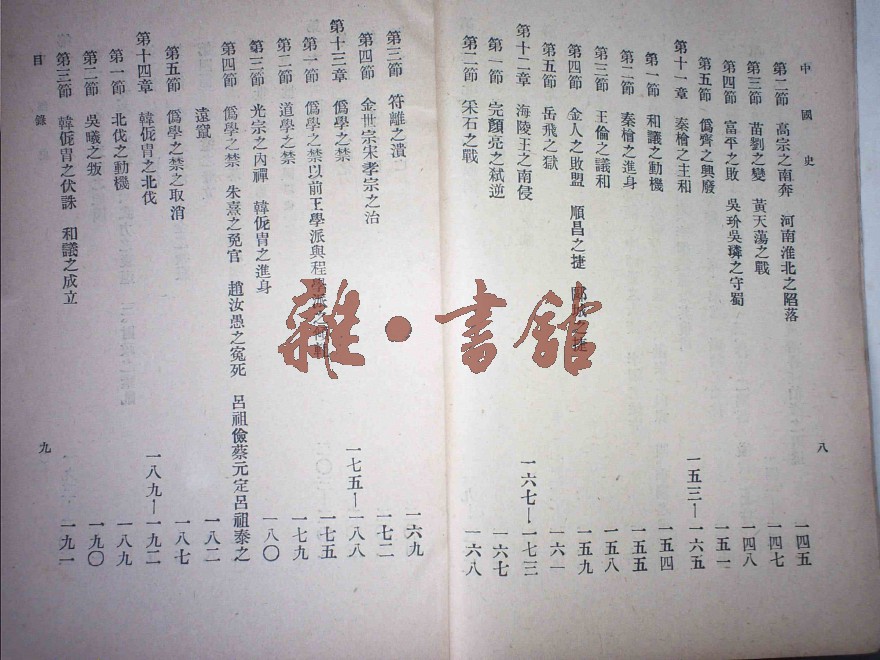 中國史
八
第二節 高宗之南奔 河南淮北之陷落 一四五
第三節 苗劉之變 黃天蕩之戰 一四七
第四節 富平之敗 吳玠吳璘之守蜀 一四八
第五節 僞齊之興廢 一五一
第十一章 秦檜之主和 一五三—一六五
第一節 和議之動機 一五四
第二節 秦檜之進身 一五五
第三節 王倫之議和 一五八
第四節 金人之敗盟 順昌之捷 之捷 一五九
第五節 岳飛之獄 一六一
第十二章 海陵王之南侵 一六七—一七三
第一節 完顏亮之弒逆 一六七
第二節 采石之戰 一六八
第三節 符離之潰 一六九
第四節 金世宗宋孝宗之治 一七二
第十三章 僞學之禁 一七五—一八八
第一節 僞學之禁以前王學派與程學派之 一七五
第二節 道學之禁 一七九
第三節 光宗之內禪 韓侂冑之進身 一八〇
第四節 僞學之禁 朱熹之免官 趙汝愚之冤死 呂祖儉蔡元定呂祖泰之
遠竄 一八二
第五節 僞學之禁之取消 一八七
第十四章 韓侂冑之北伐 一八九—一九二
第一節 北伐之動機 一八九
第二節 吳曦之叛 一九〇
第三節 韓侂冑之伏誅 和議之成立 一九一
目錄
九
雜·書館